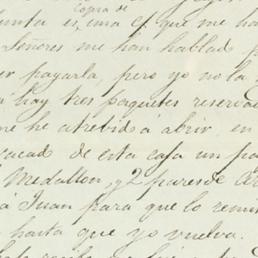 copia de
unta es, una cf que me ha
Señores me han hablad
er pagarla, pero yo no la
a hay tres paquetes reserva
me he atrebido á abrir, en
vacad de esta casa un pa
Medallon, y 2 pares de
á Juan para que lo remi
hasta que yo vuelva.